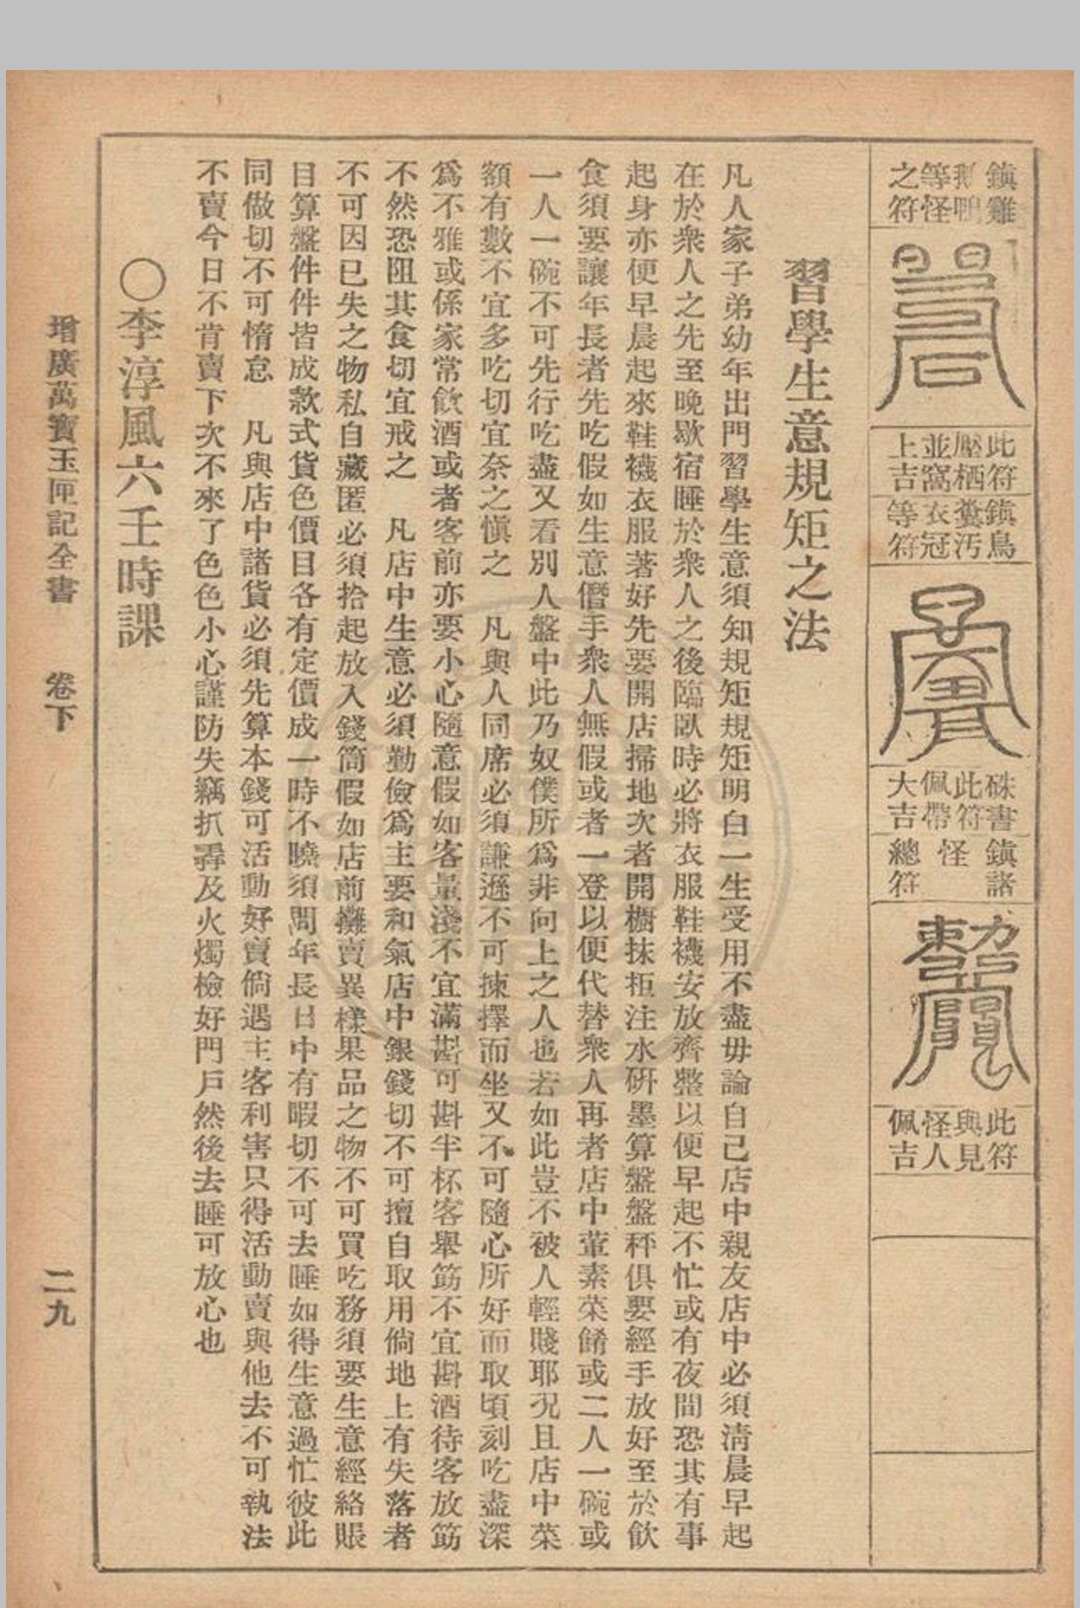 鎮雞
鵝鴨
等怪
之符
此符
壓栖
並窩
上吉
鎮鳥
糞污
衣冠
等符
硃書
此符
佩帶
大吉
鎮諸
怪
總符
此符
與見
怪人
佩吉
習學生意規矩之法
凡人家子弟幼年出門習學生意須知規矩規矩明白一生受用不盡毋論自己店中親友店中必須淸晨早起
在於衆人之先至晚歇宿睡於衆人之後臨臥時必將衣服鞋襪安放齊整以便早起不忙或有夜間恐其有事
起身亦便早晨起來鞋襪衣服著好先要開店掃地次者開櫥抹拒注水硏墨算盤盤秤俱要經手放好至於飮
食須要讓年長者先吃假如生意僭手衆人無假或者一登以便代替衆人再者店中葷素菜餚或二人一碗或
一人一碗不可先行吃盡又看別人盤中此乃奴僕所爲非向上之人也若如此豈不被人輕賤耶況且店中菜
額有數不宜多吃切宜奈之愼之　凡與人同席必須謙遜不可揀擇而坐又不可隨心所好而取頃刻吃盡深
爲不雅或係家常飮酒或者客前亦要小心隨意假如客量淺不宜滿斟可斟半杯客舉筯不宜斟酒待客放筯
不然恐阻其食切宜戒之　凡店中生意必須勤儉爲主要和氣店中銀錢切不可擅自取用倘地上有失落者
不可因已失之物私自藏匿必須拾起放入錢筒假如店前攤賣異樣果品之物不可買吃務須要生意經絡賬
目算盤件件皆成款式貨色價目各有定價成一時不曉須問年長日中有暇切不可去睡如得生意過忙彼此
同做切不可惰怠　凡與店中諸貨必須先算本錢可活動好賣倘遇主客利害只得活動賣與他去不可執法
不賣今日不肯賣下次不來了色色小心謹防失竊扒弄及火燭檢好門戶然後去睡可放心也
〇李淳風六壬時課
增廣萬寶玉匣記全書　卷下　二九